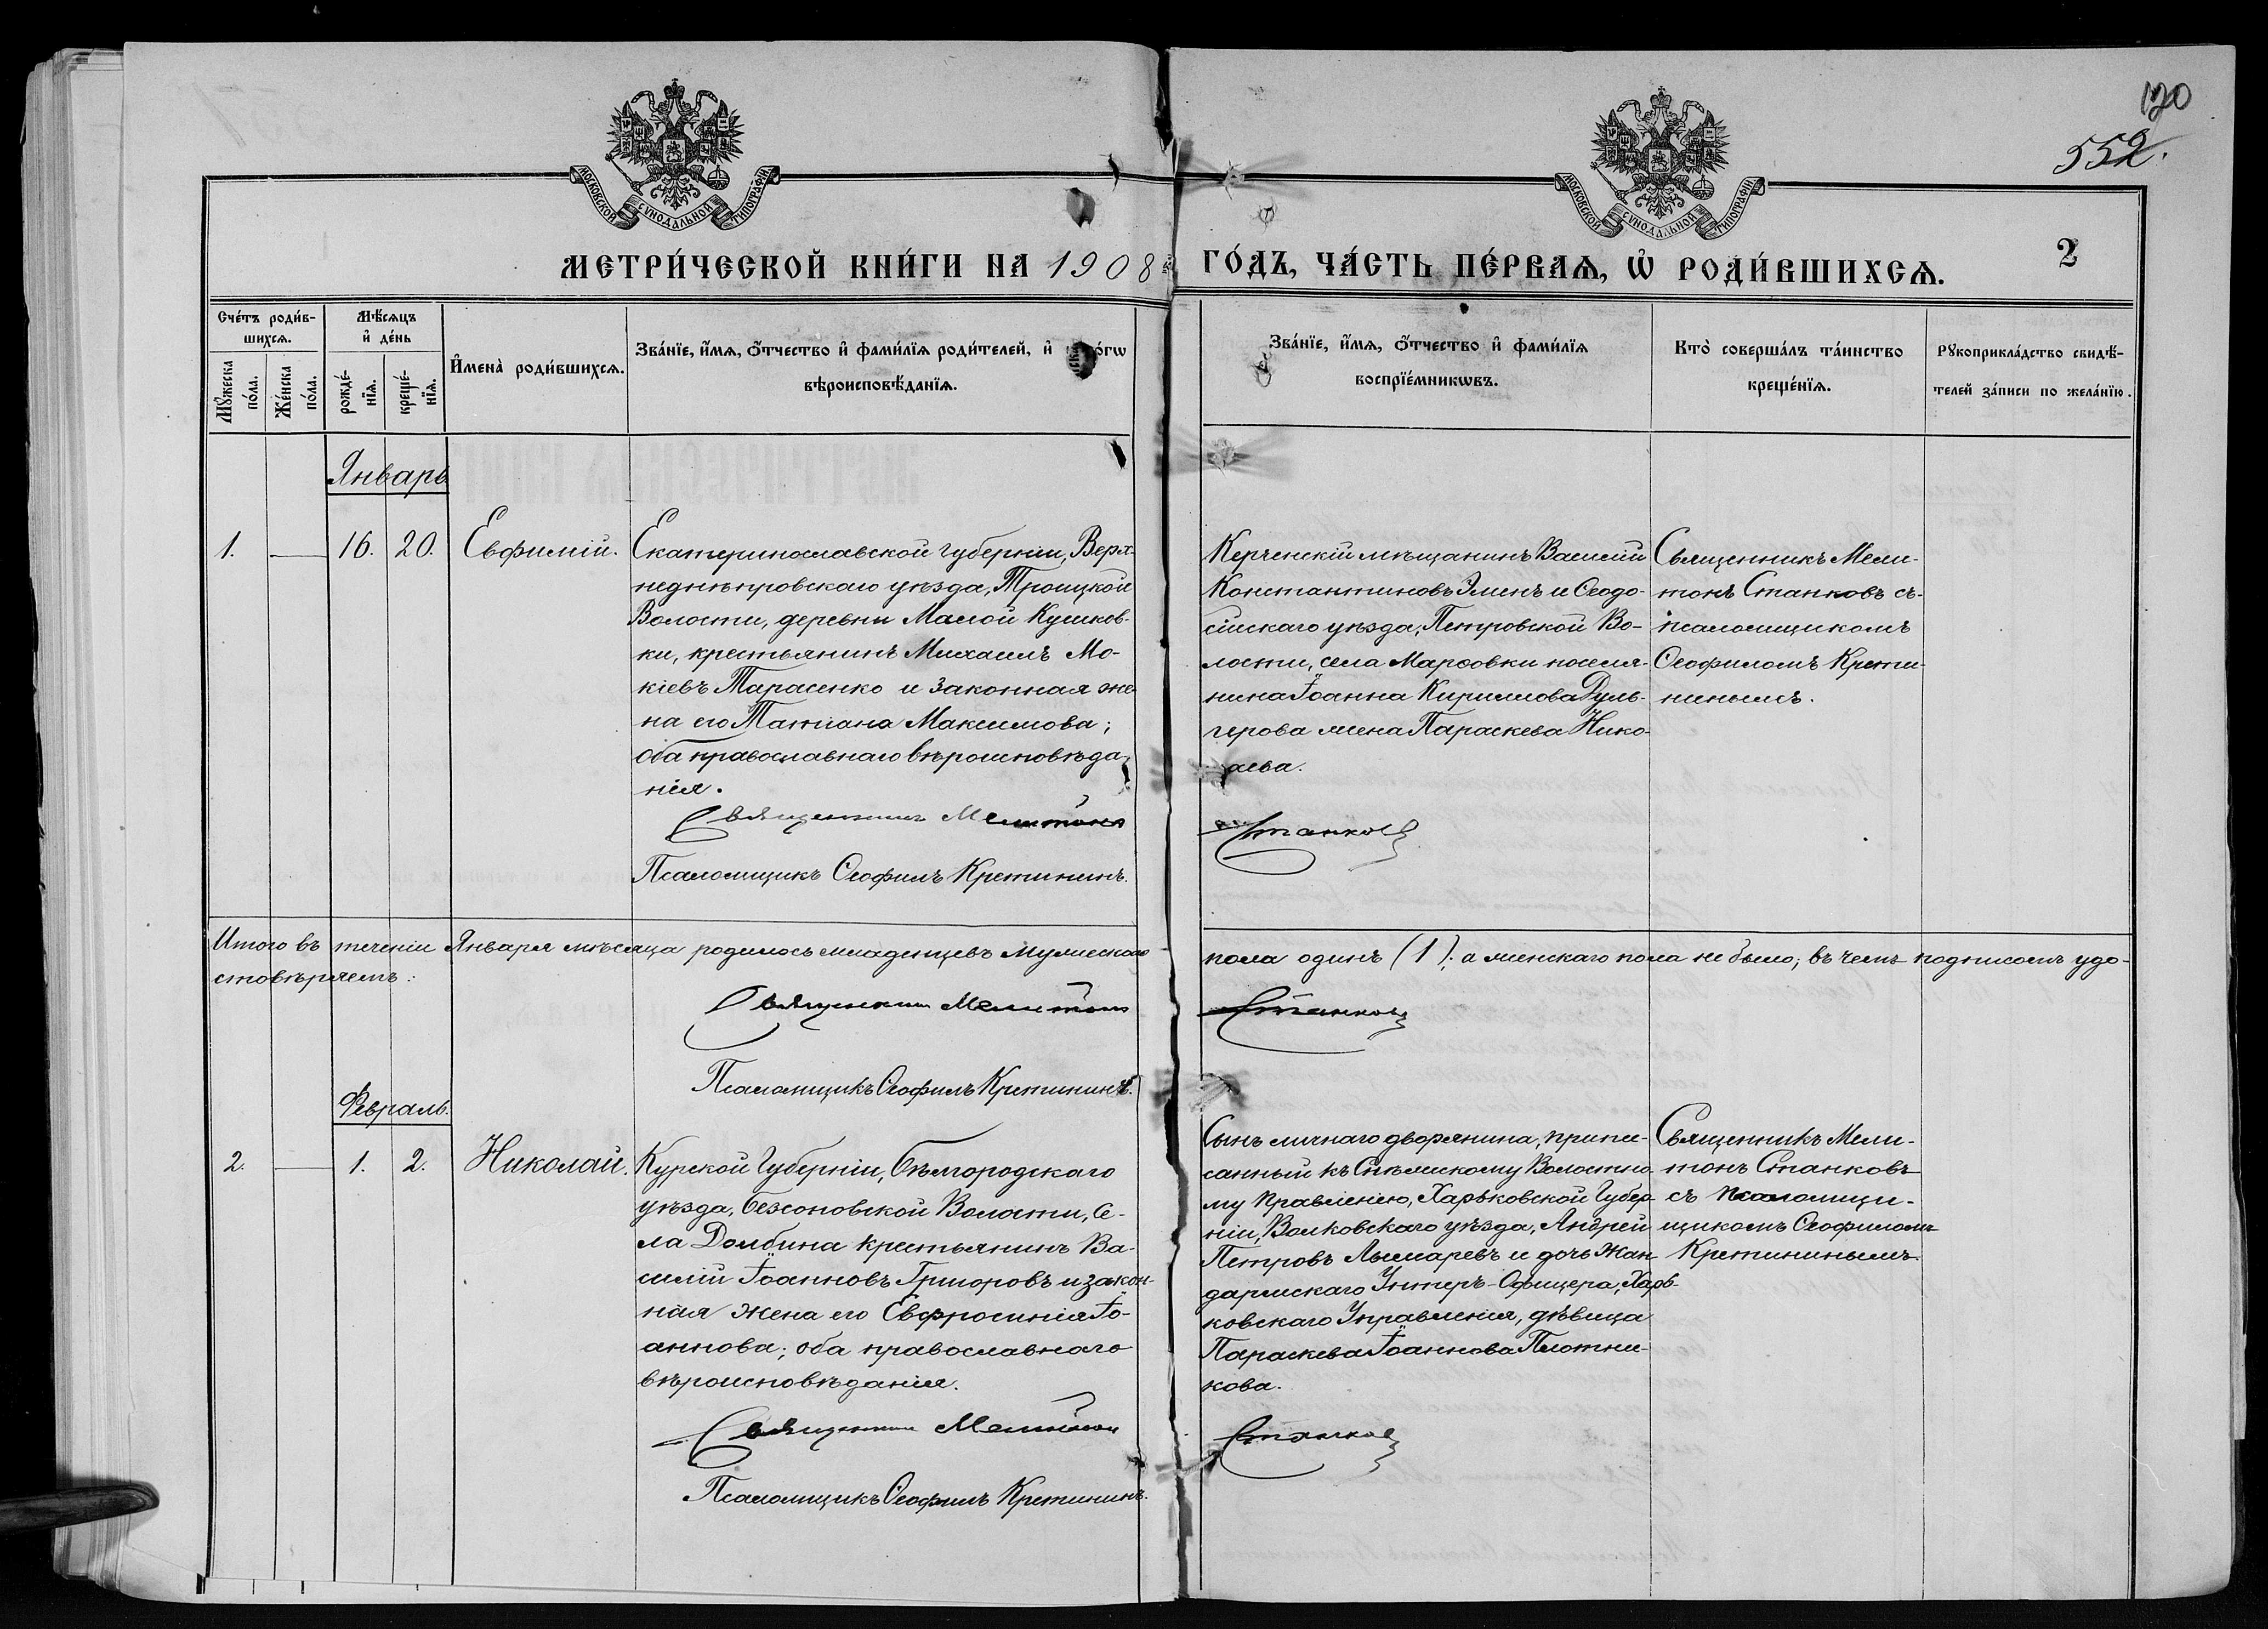 120
552.
МОСКОВСКОЙ СѴНОДАЛЬНОЙ ТИПОГРАФІИ
МОСКОВСКОЙ СѴНОДАЛЬНОЙ ТИПОГРАФІИ
МЕТРИ́ЧЕСКОЙ КНИ́ГИ НА 1908 й ГО́ДЪ, ЧА́СТЬ ПЕ́РВАѦ, Ѡ҆ РОДИ́ВШИХСѦ.
2
Сче́тъ роди́в-
шихсѧ.
Мꙋ́жеска по́ла.
Же́нска по́ла.
Мѣ́сѧцъ
и҆ де́нь
рожде́-нїѧ.
креще́-нїѧ.
И҆мена̀ роди́вшихсѧ.
Зва́нїе, и҆́мѧ, ѻ҆́тчество и҆ фами́лїѧ роди́телей, и҆
вѣроисповѣ́данїѧ.
Зва́нїе, и҆́мѧ, ѻ҆́тчество и҆ фами́лїѧ
воспрїе́мникѡвъ.
Кто̀ соверша́лъ та́инство
креще́нїѧ.
Рꙋкоприкла́дство свидѣ́-
телей за́писи по жела́нїю.
Январь
1. — 16. 20. Евфимій.
Екатеринославской губерніи, Верх-
неднѣпровскаго уѣзда, Троицкой
Волости, деревни Малой Кушков-
ки, крестьянинъ Михаилъ Мо-
кіевъ Тарасенко и законная же-
на его Татіана Максимова;
оба православнаго вѣроисповѣда-
нія.
Священникъ Мелитонъ
Псаломщикъ Ѳеофилъ Кретининъ.
Керченскій мѣщанинъ Василій
Константиновъ Элинъ и Ѳеодо-
сійскаго уѣзда, Петровской Во-
лости, села Марѳовки поселя-
нина Іоанна Кириллова Дуль-
герова жена Параскева Нико-
лаева.
Станковъ
Священникъ Мели-
тонъ Станковъ съ
псаломщикомъ
Ѳеофиломъ Крети-
нинымъ.
Итого въ теченіи Января мѣсяца родилось младенцевъ мужескаго пола одинъ (1); а женскаго пола не было; въ чемъ подписомъ удо-
стовѣряемъ:
Священникъ Мелитонъ Станковъ
Псаломщикъ Ѳеофилъ Кретининъ.
Февраль.
2. — 1. 2. Николай.
Курской Губерніи, Бѣлгородскаго
уѣзда, Безсоновской Волости, се-
ла Долбина крестьянинъ Ва-
силій Іоанновъ Григоровъ и закон-
ная жена его Евфросинія Іо-
аннова; оба православнаго
вѣроисповѣданія.
Священникъ Мелитонъ
Псаломщикъ Ѳеофилъ Кретининъ.
Сынъ личнаго дворянина, припи-
санный къ Волостно-
му Правленію, Харьковской Губер-
ніи, Волковскаго уѣзда, Андрей
Петровъ Лымаревъ и дочь Жан-
дармскаго Унтеръ-Офицера, Харь-
ковскаго Управленія, дѣвица
Параскева Іоаннова Плотни-
кова.
Станковъ
Священникъ Мели-
тонъ Станковъ
съ псаломщи-
щикомъ Ѳеофиломъ
Кретининымъ.